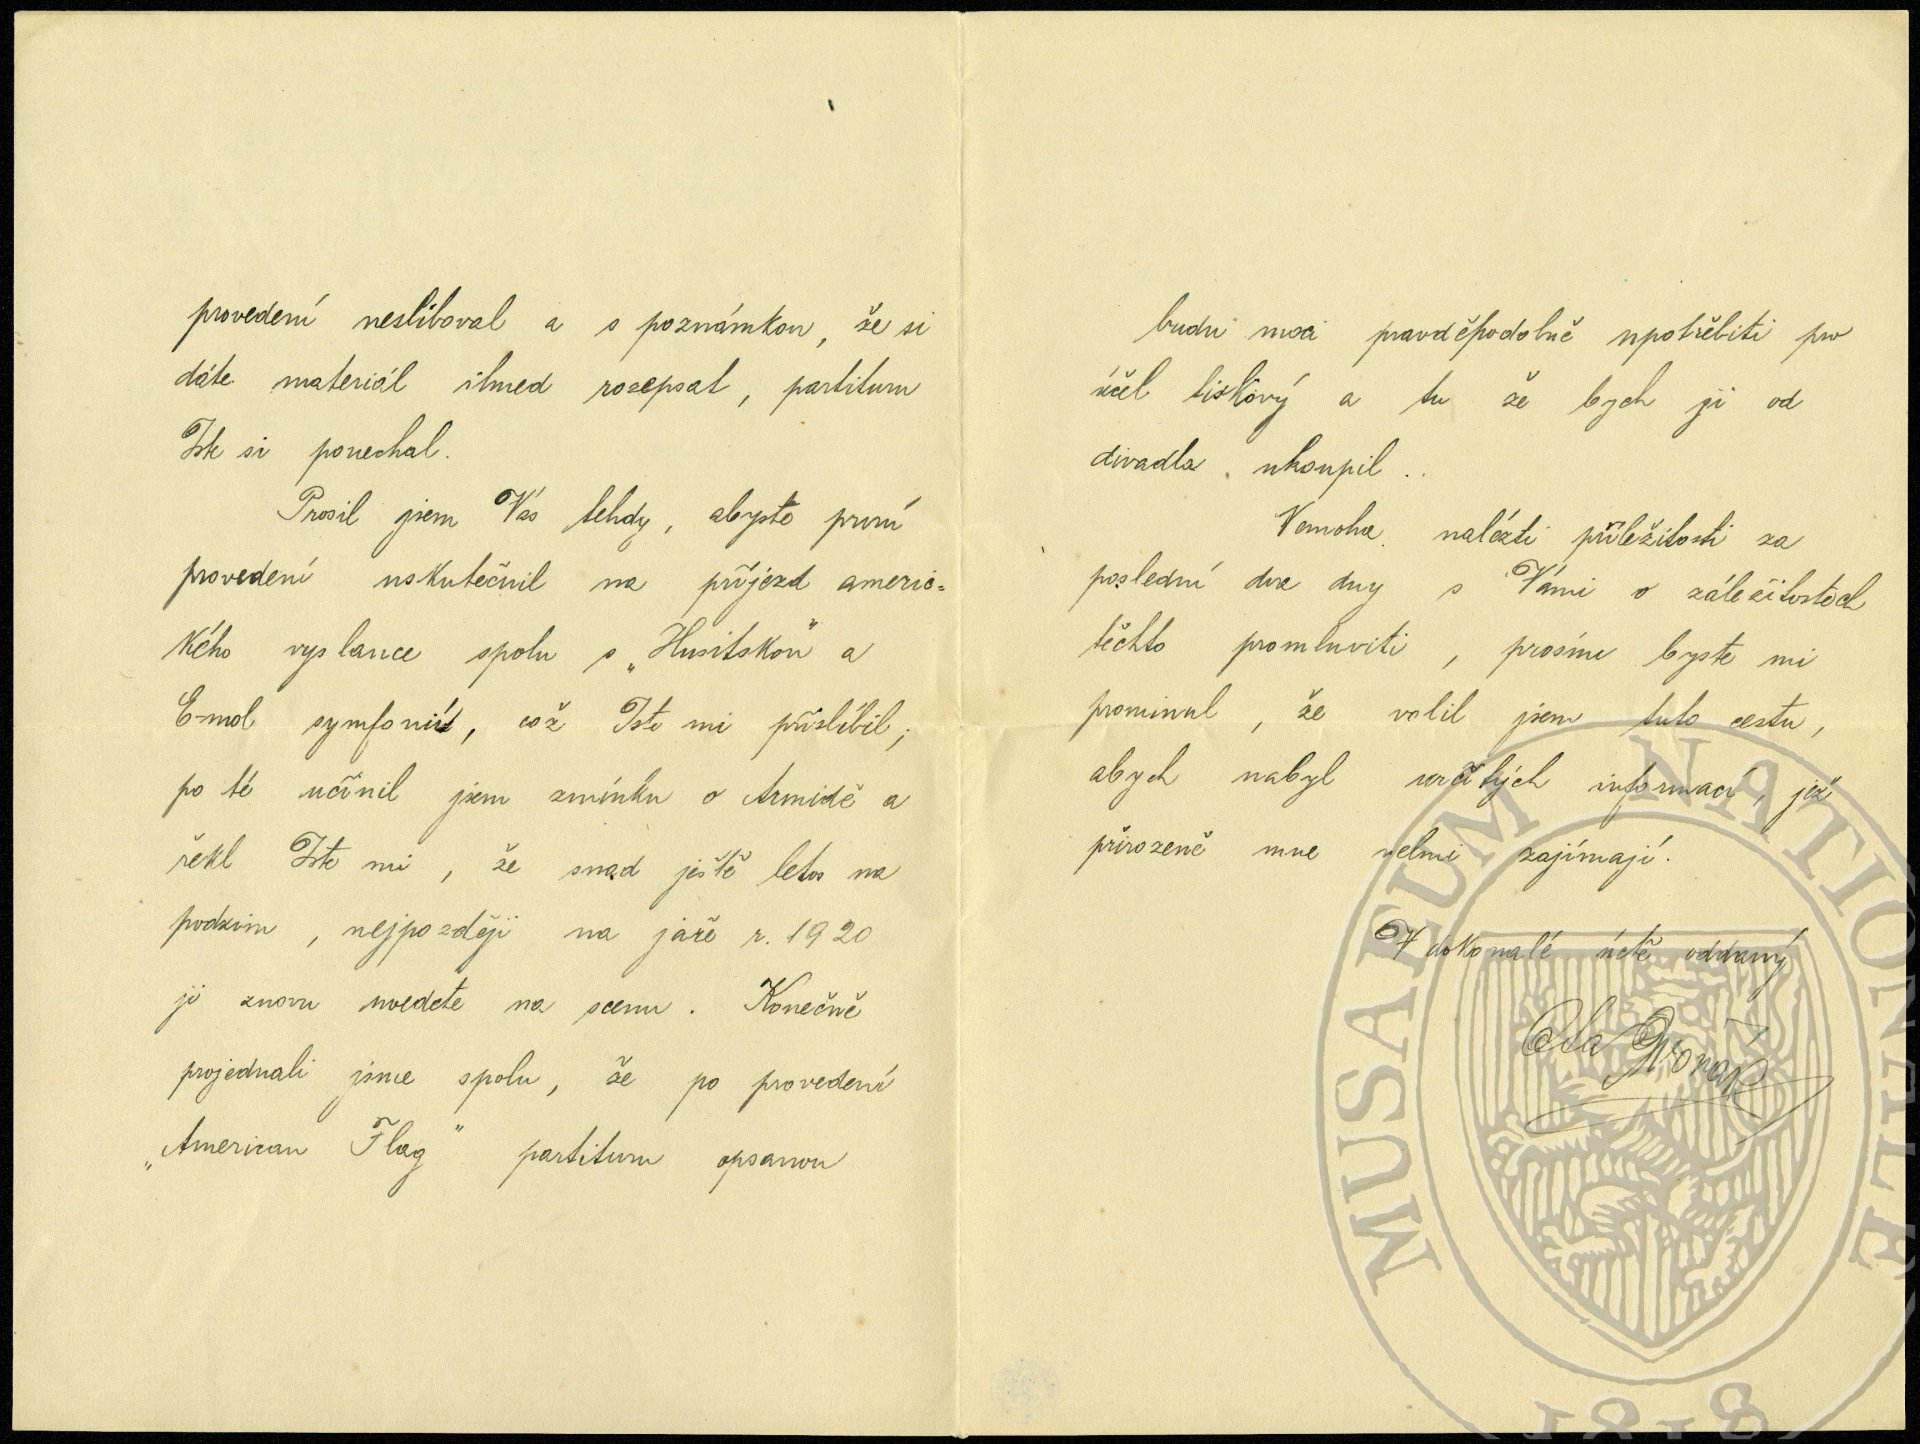 provedení nesliboval a s poznámkou, že si
dáte materiál ihned rozepsat, partituru
Jste si ponechal.
Prosil jsem Vás tehdy, abyste první
provedení uskutečnil na příjezd americ=
kého vyslance spolu s „Husitskou" a
E-mol symfonií, což Jste mi přislíbil;
po té učinil jsem zmínku o Armidě a
řekl Jste mi, že snad ještě letos na
podzim, nejpozději na jaře r. 1920
ji znovu uvedete na scenu. Konečně
projednali jsme spolu, že po provedení
„American Flag" partituru opsanou
budu moci pravděpodobně upotřebiti pro
účel tiskový a tu že bych ji od
divadla ukoupil..
Nemoha nalézti příležitosti za
poslední dva dny s Vámi o záležitostech
těchto promluviti, prosím byste mi
prominul, že volil jsem tuto cestu,
abych nabyl určitých informací, jež
přirozeně mne velmi zajímají.
V dokonalé úctě oddaný
MUSAEUM NATIONALE
1818